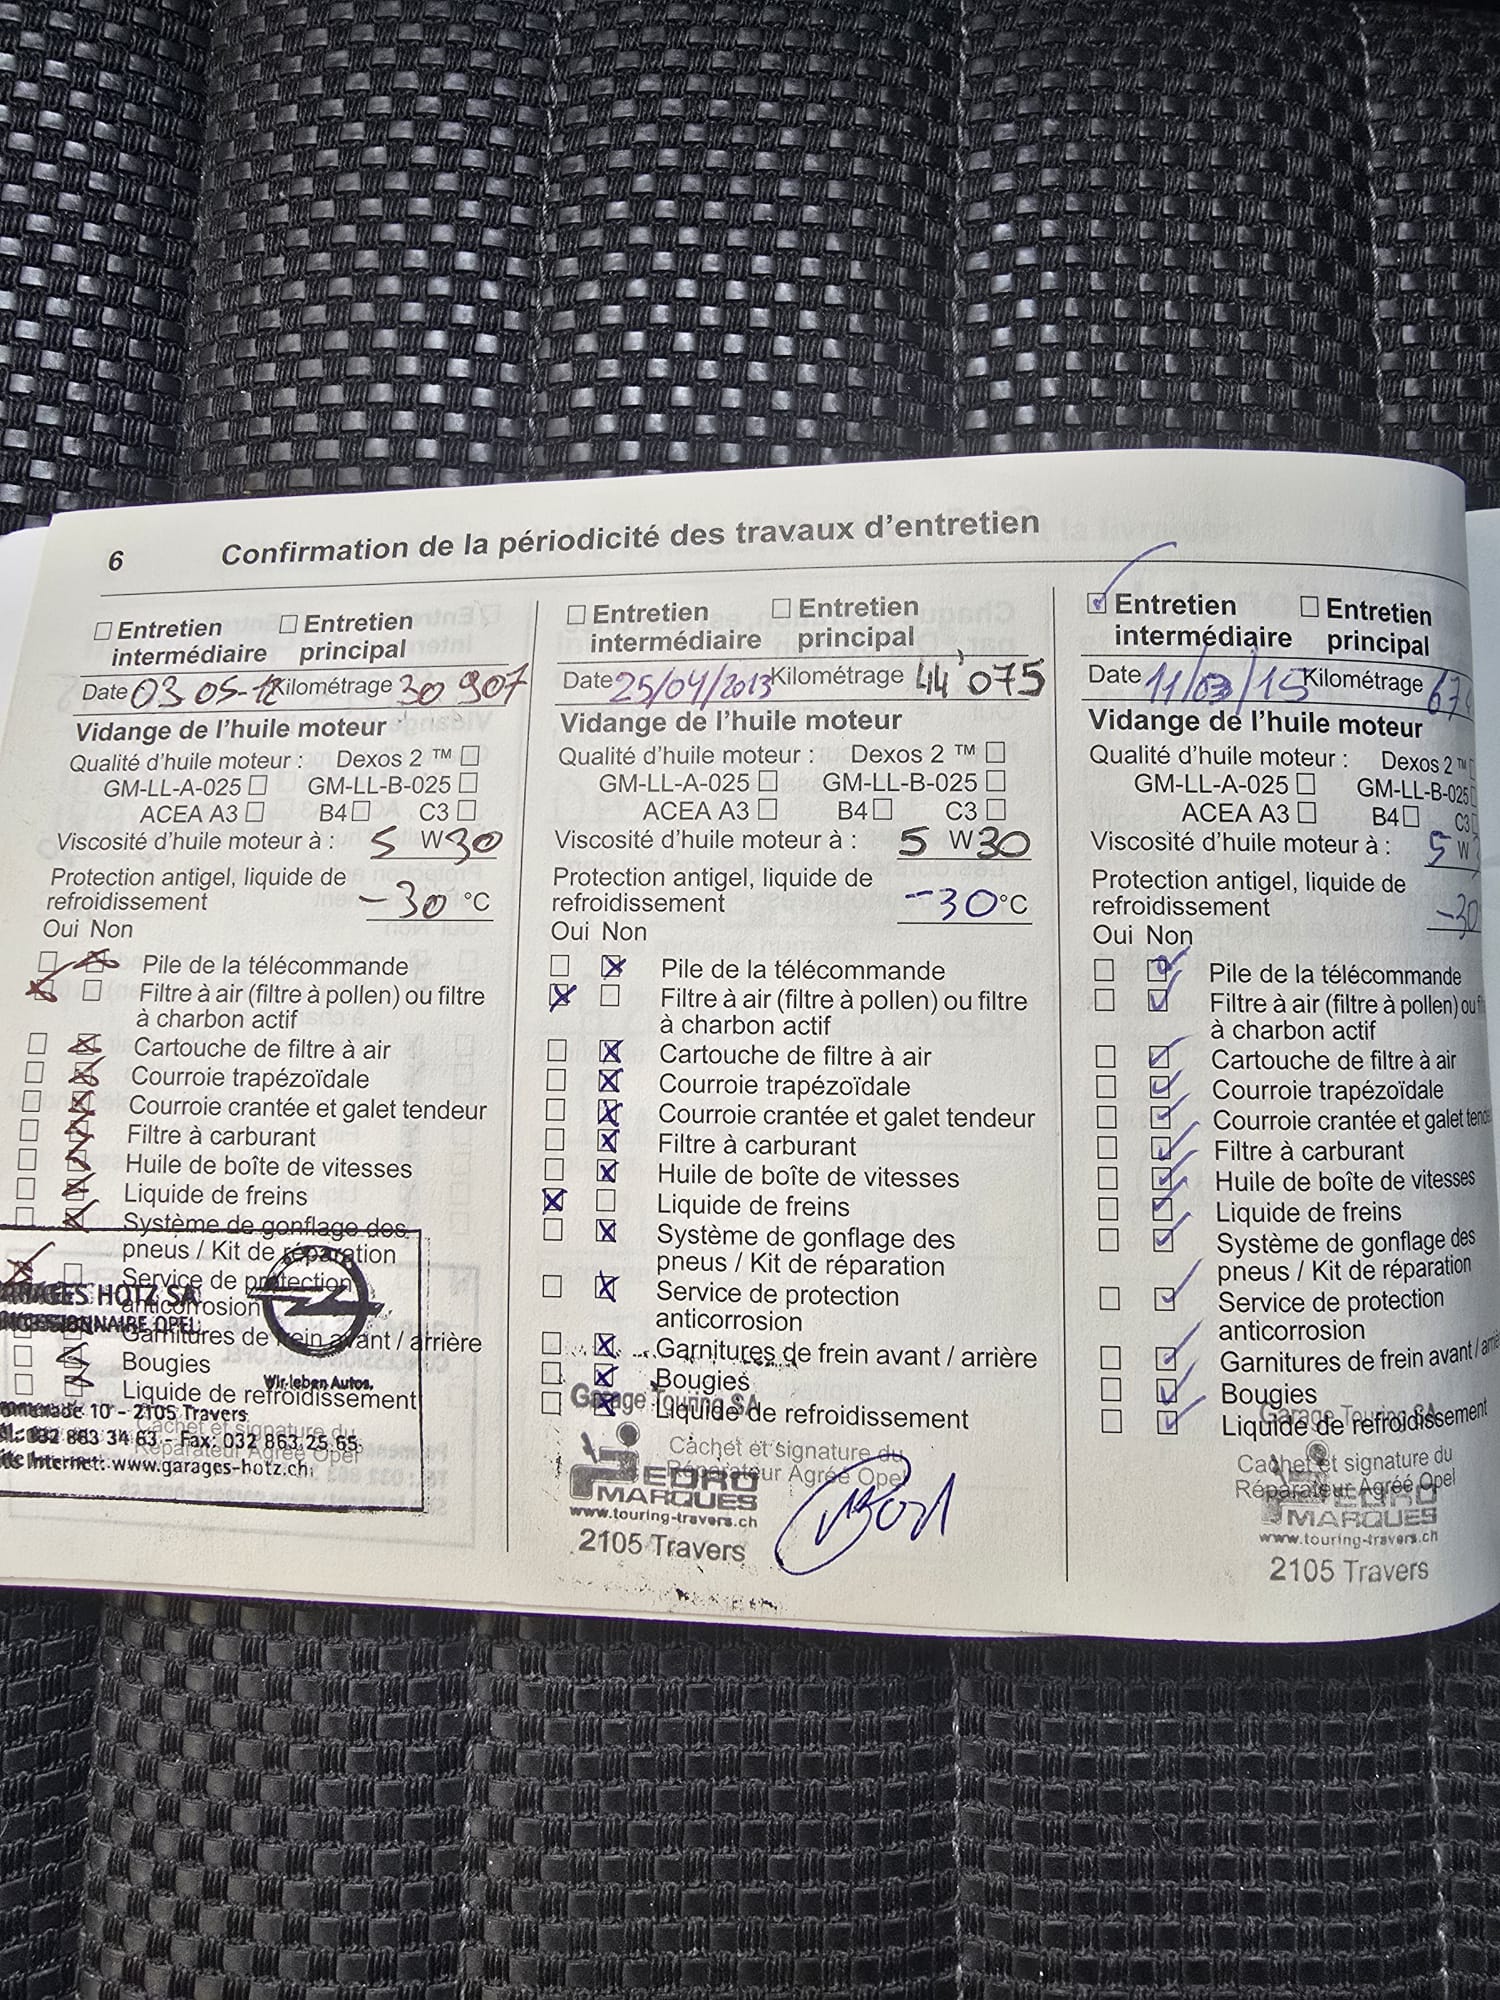 6 Confirmation de la périodicité des travaux d'entretien
Entretien intermédiaire
Entretien principal
Date 03 05-12 Kilométrage 30 907
Vidange de l'huile moteur
Qualité d'huile moteur : Dexos 2 ™
GM-LL-A-025 GM-LL-B-025
ACEA A3 B4 C3
Viscosité d'huile moteur à : 5 W 30
Protection antigel, liquide de
refroidissement -30 °C
Oui Non
Pile de la télécommande
Filtre à air (filtre à pollen) ou filtre
à charbon actif
Cartouche de filtre à air
Courroie trapézoïdale
Courroie crantée et galet tendeur
Filtre à carburant
Huile de boîte de vitesses
Liquide de freins
Système de gonflage des
pneus / Kit de réparation
Service de protection
anticorrosion
Garnitures de frein avant / arrière
Bougies
Liquide de refroidissement
Cachet et signature du
Réparateur Agréé Opel
HOTZ SA
OPEL
Wir leben Autos.
10 - 2105 Travers
032 863 34 63 - Fax: 032 863 25 65
Internet: www.garages-hotz.ch
Entretien intermédiaire
Entretien principal
Date 25/04/2013 Kilométrage 44'075
Vidange de l'huile moteur
Qualité d'huile moteur : Dexos 2 ™
GM-LL-A-025 GM-LL-B-025
ACEA A3 B4 C3
Viscosité d'huile moteur à : 5 W 30
Protection antigel, liquide de
refroidissement -30 °C
Oui Non
Pile de la télécommande
Filtre à air (filtre à pollen) ou filtre
à charbon actif
Cartouche de filtre à air
Courroie trapézoïdale
Courroie crantée et galet tendeur
Filtre à carburant
Huile de boîte de vitesses
Liquide de freins
Système de gonflage des
pneus / Kit de réparation
Service de protection
anticorrosion
Garnitures de frein avant / arrière
Bougies
Liquide de refroidissement
Cachet et signature du
Réparateur Agréé Opel
Garage Touring SA
PEDRO
MARQUES
www.touring-travers.ch
2105 Travers
Entretien intermédiaire
Entretien principal
Date 11/03/15 Kilométrage 67
Vidange de l'huile moteur
Qualité d'huile moteur : Dexos 2 ™
GM-LL-A-025 GM-LL-B-025
ACEA A3 B4 C3
Viscosité d'huile moteur à : 5 W
Protection antigel, liquide de
refroidissement -30
Oui Non
Pile de la télécommande
Filtre à air (filtre à pollen) ou
à charbon actif
Cartouche de filtre à air
Courroie trapézoïdale
Courroie crantée et galet
Filtre à carburant
Huile de boîte de vitesses
Liquide de freins
Système de gonflage des
pneus / Kit de réparation
Service de protection
anticorrosion
Garnitures de frein avant /
Bougies
Liquide de refroidissement
Cachet et signature du
Réparateur Agréé Opel
Garage Touring SA
PEDRO
MARQUES
www.touring-travers.ch
2105 Travers